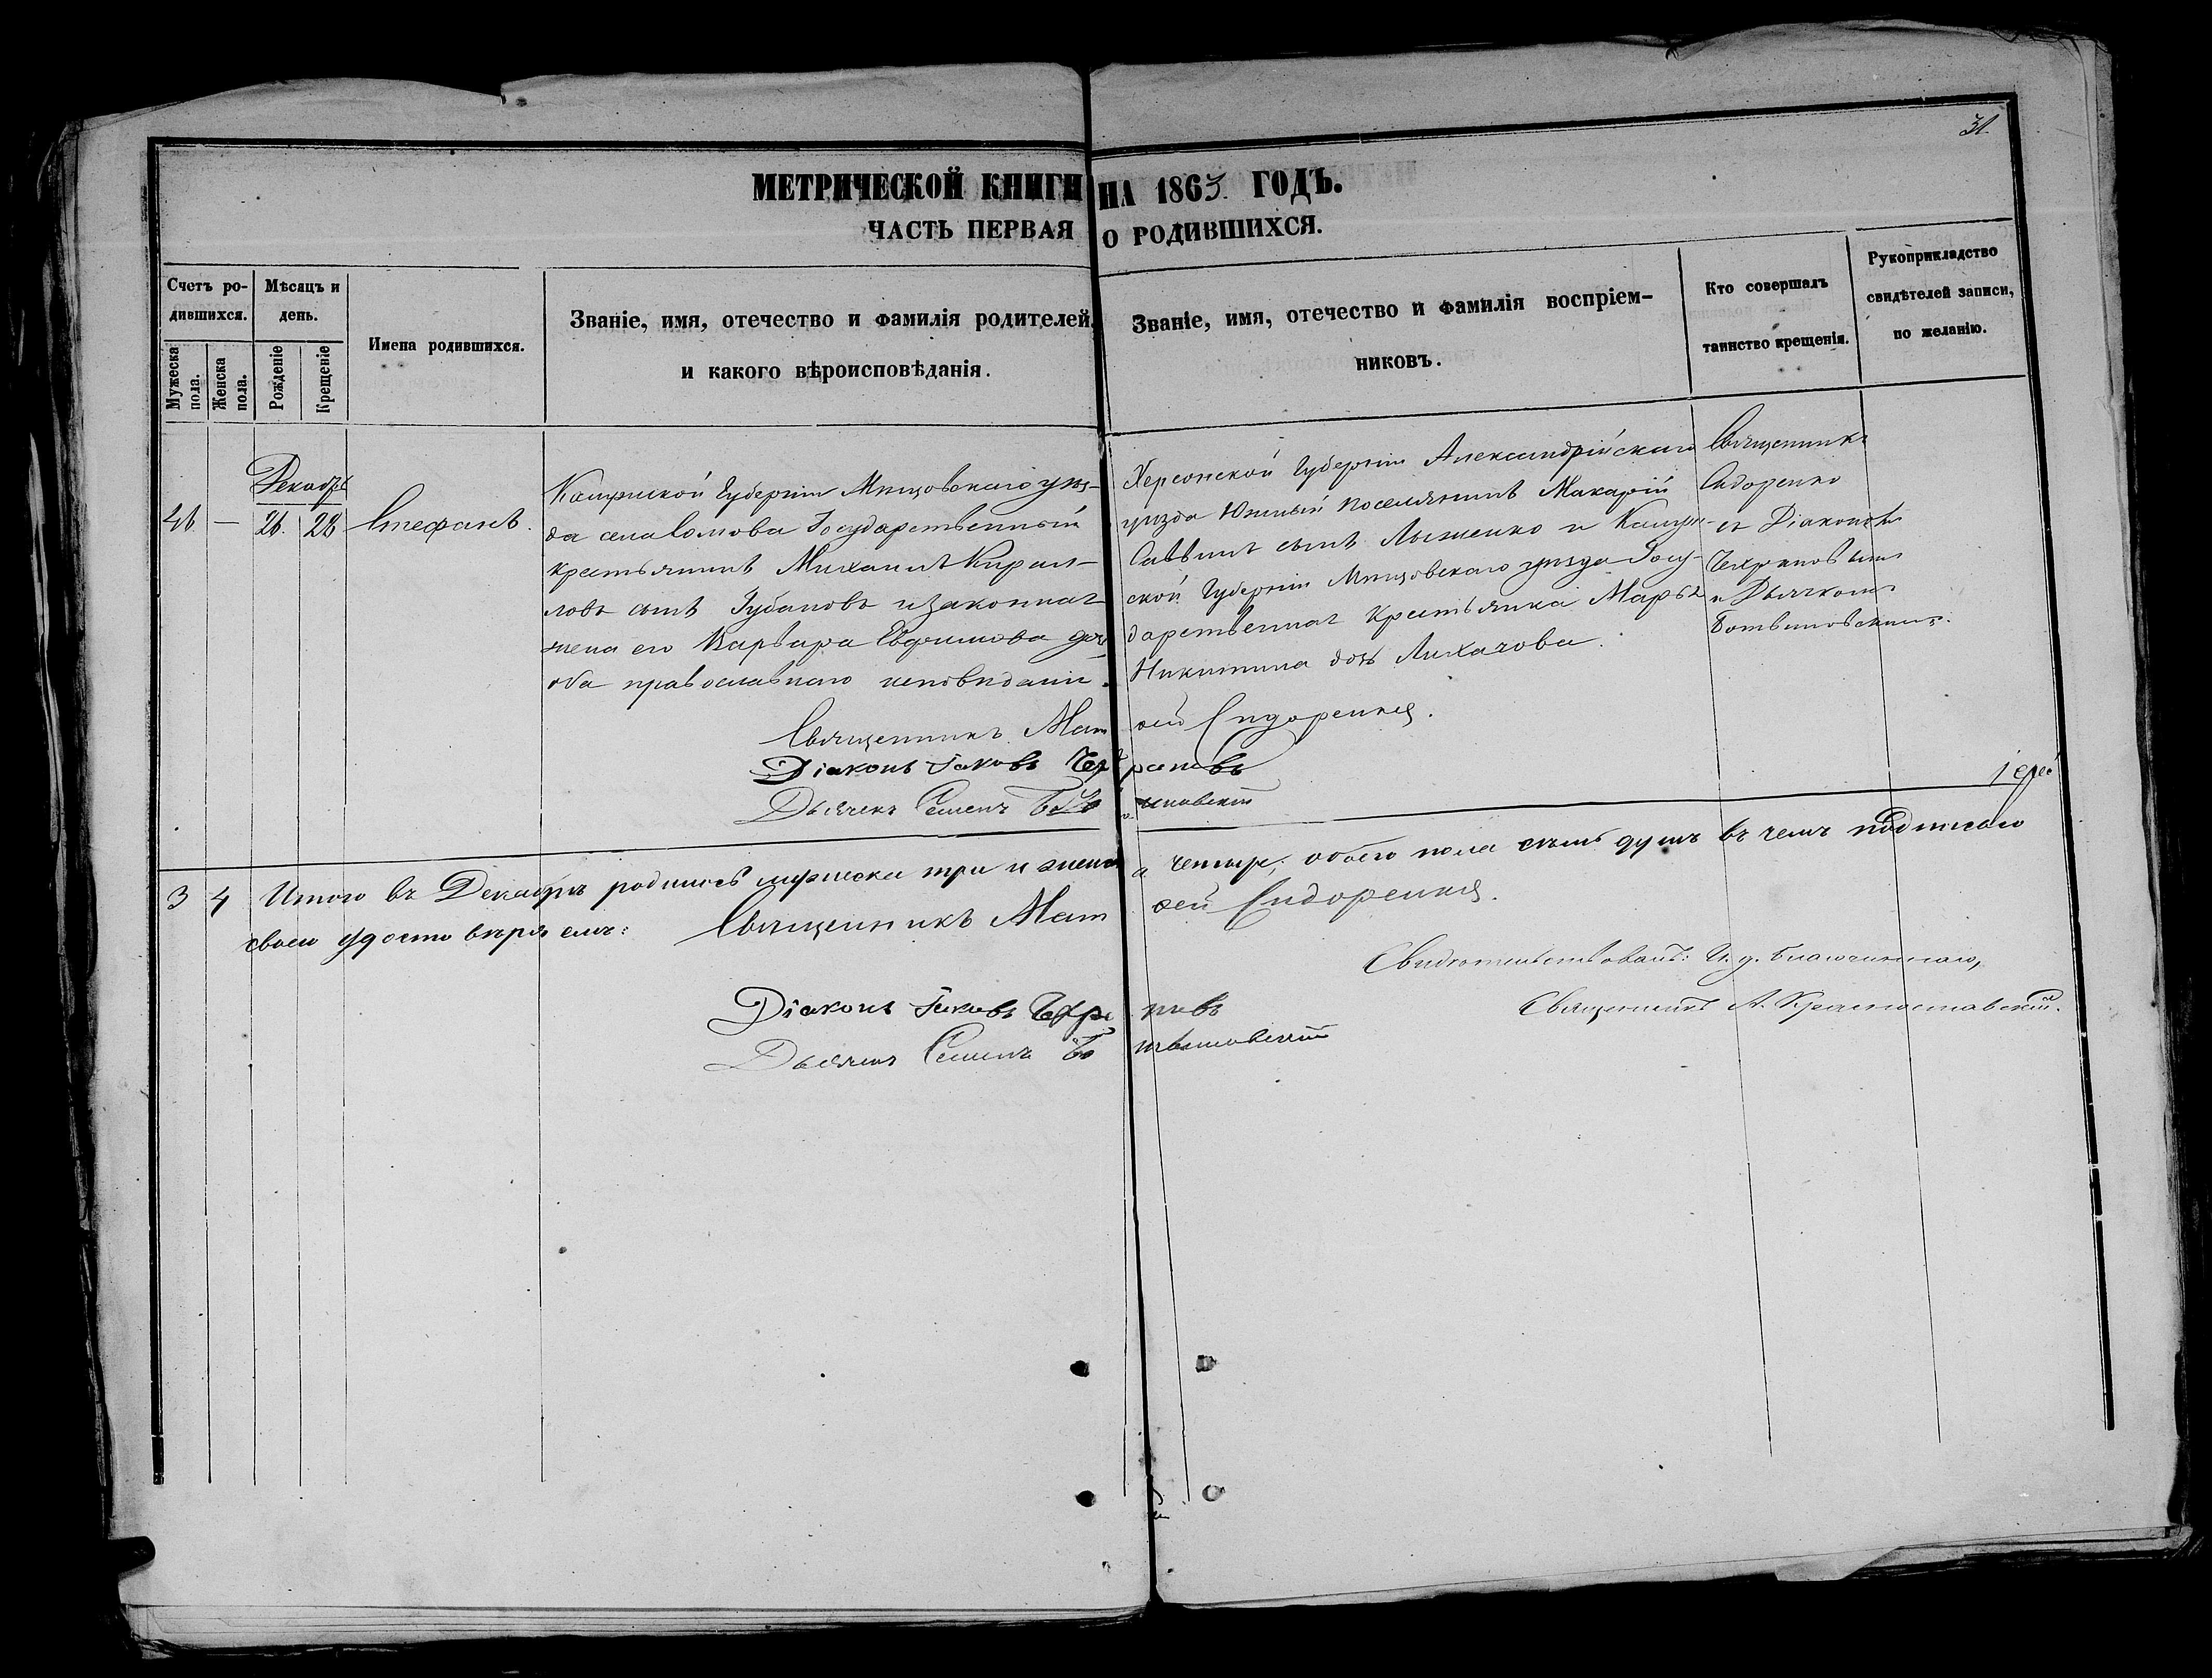 31.
МЕТРИЧЕСКОЙ КНИГИ НА 1863. ГОДЪ.
ЧАСТЬ ПЕРВАЯ О РОДИВШИХСЯ.
Счетъ ро-
дившихся.
Мужеска пола.
Женска пола.
Мѣсяцъ и
день.
Рожденіе
Крещеніе
Имена родившихся.
Званіе, имя, отечество и фамилія родителей,
и какого вѣроисповѣданія.
Званіе, имя, отечество и фамилія воспріем-
никовъ.
Кто совершалъ
таинство крещенія.
Рукоприкладство
свидѣтелей записи,
по желанію.
Декабрь
26. 28
Стефанъ.
Калужской Губерніи Мещовскаго уѣз-
да села Сомова Государственный
крестьянинъ Михаилъ Кирил-
ловъ сынъ Губановъ и законная
жена его Варвара Евфимова дочь
оба православнаго исповѣданія.
Херсонской Губерніи Александрійскаго
уѣзда Южный поселянинъ Макарій
Саввинъ сынъ Лысенко и Калуж-
ской Губерніи Мещовскаго уѣзда Госу-
дарственная Крестьянка Марѳа
Никитина дочь Лихачова.
Священникъ
Сидоренко
съ Діакономъ
и Дьячкомъ
Ботвиновскимъ.
Священникъ Матѳей Сидоренко.
Діаконъ Іаковъ
Дьячекъ Семенъ Ботвиновскій
3 4 Итого въ Декабрѣ родилось мужеска три и женска четыре, обоего пола семь душъ въ чемъ подписомъ
своимъ удостовѣряемъ: Священникъ Матѳей Сидоренко.
Діаконъ Іаковъ
Дьячекъ Семенъ Ботвиновскій
Свидѣтельствовалъ: И. д. Благочиннаго,
Священникъ А. Красноставскій.